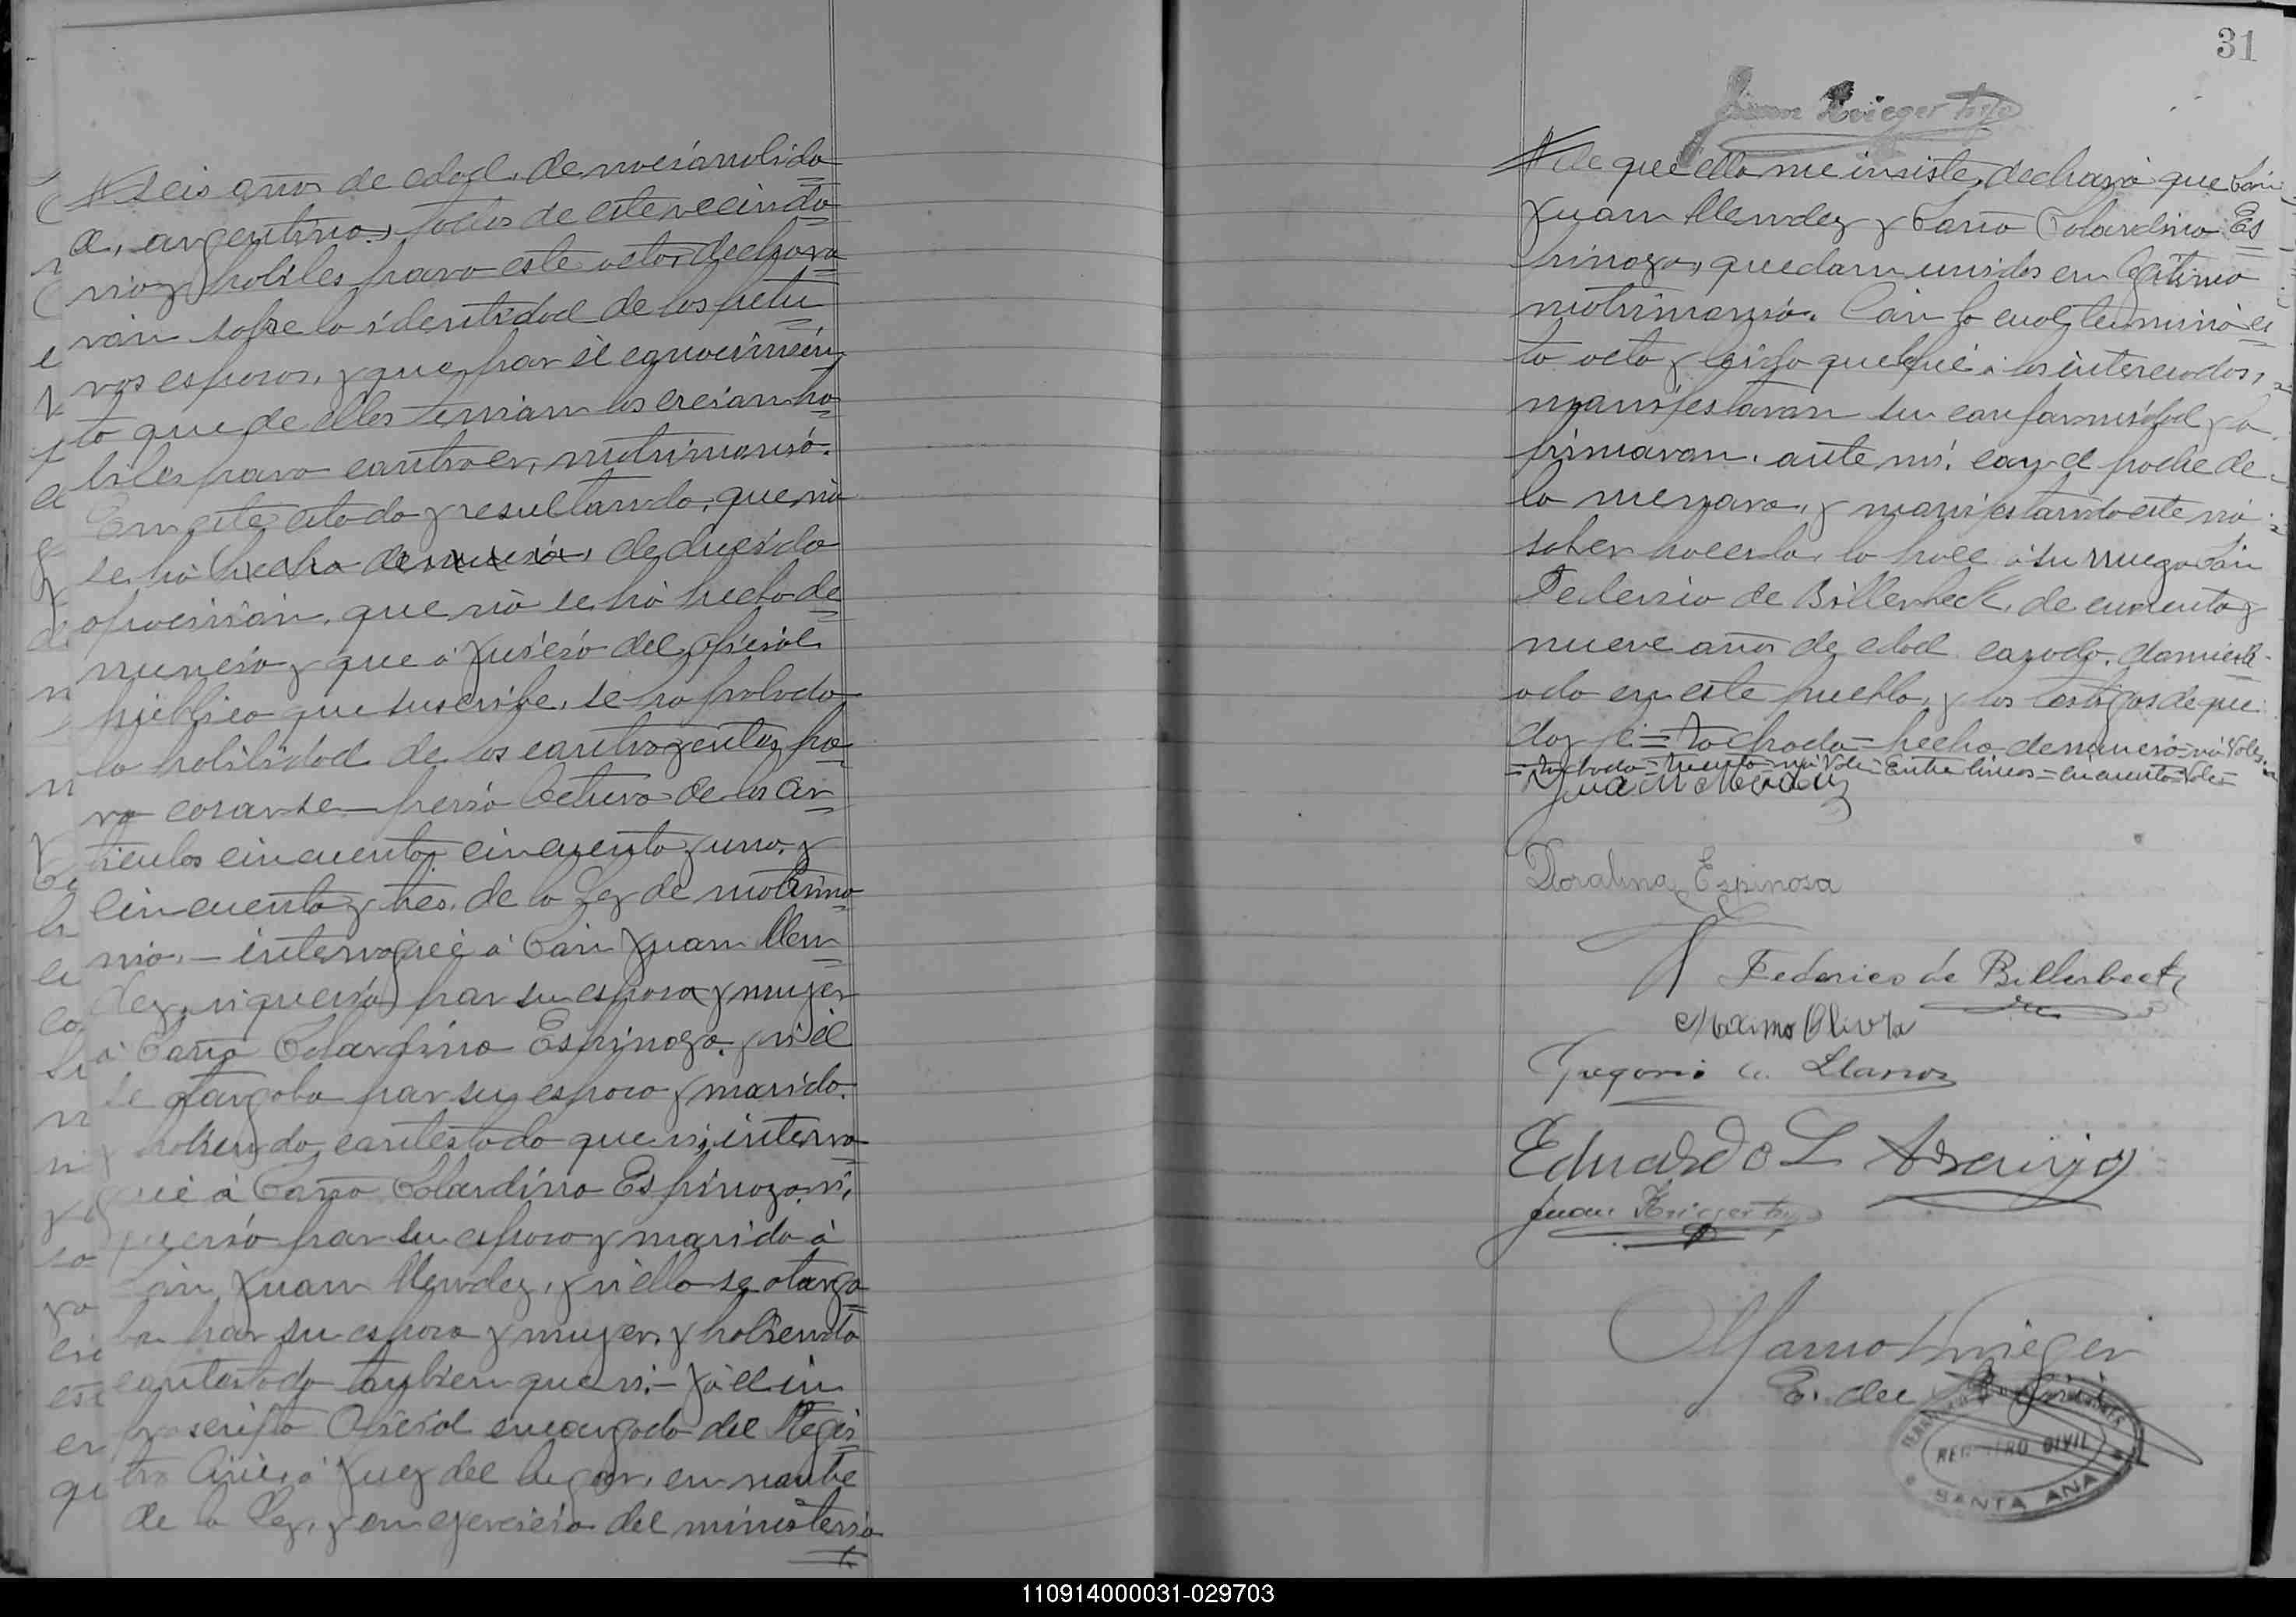 seis años de edad, de nacionalida
d, argentinos, todos de este vecinda
rio y habiles para este acto, declara
rán sobre la identidad de los futu
ros esposos, y que por él conocimien
to que de ellos tenian los creian ha
biles para contraer, matrimonio.
En este estado y resultando, que no
se há hecho denuncia, deducido
oposición, que no se há hecho de
nuncia, y que á juicio del oficial
público que suscribe, se ha probado
la habilidad de los contrayentes, pa
ra casarse - previa lectura de los ar
ticulos cincuenta, cincuenta y uno, y
cincuenta y tres, de la Ley de matrimo
nio, - interrogué á Don Juan Men
dez, si queria por su esposa y mujer
á Doña Clardina Espinoza, y si él
se otorgaba por su esposo y marido.
y habiendo contestado que si, interro
gué á Doña Clardina Espinoza, si,
queria por su esposo y marido á
Don Juan Mendez, y si ella se otorga
ba por su esposa y mujer, y habiendo
contestado tambien que si. - Yo el in
frascripto Oficial encargado del Regis
tro Civil, ó Juez del lugar, en nombre
de la Ley, y en ejercicio del ministerio
31
Juan Krieger hijo
de que ella me inviste, declaro que Don
Juan Mendez y Doña Clardina Es
pinoza, quedan unidos en legitimo
matrimonio. Con lo cual terminó es
to acto y leida que le fué á los interesados,
manifestaron su conformidad y la
firmaron, ante mi, con el padre de
la menor, y manifestando este no
saber hacerlo, lo hace á su ruego Don
Federico de Billerbeck, de cuarenta y
nueve años de edad casado, domicili
ado en este pueblo, y los testigos de que
doy fé = tachado = hecho denuncia = no vale =
= tachado = no vale = Entre lineas = cincuenta = Vale =
Juan Mendez
Doralina Espinosa
Federico de Billerbeck
Maximo Olivra
Gregorio Llanos
Eduardo L Araujo
Juan Krieger hijo
Marno Krieger
E. del
REGISTRO CIVIL
SANTA ANA
110914000031-029703